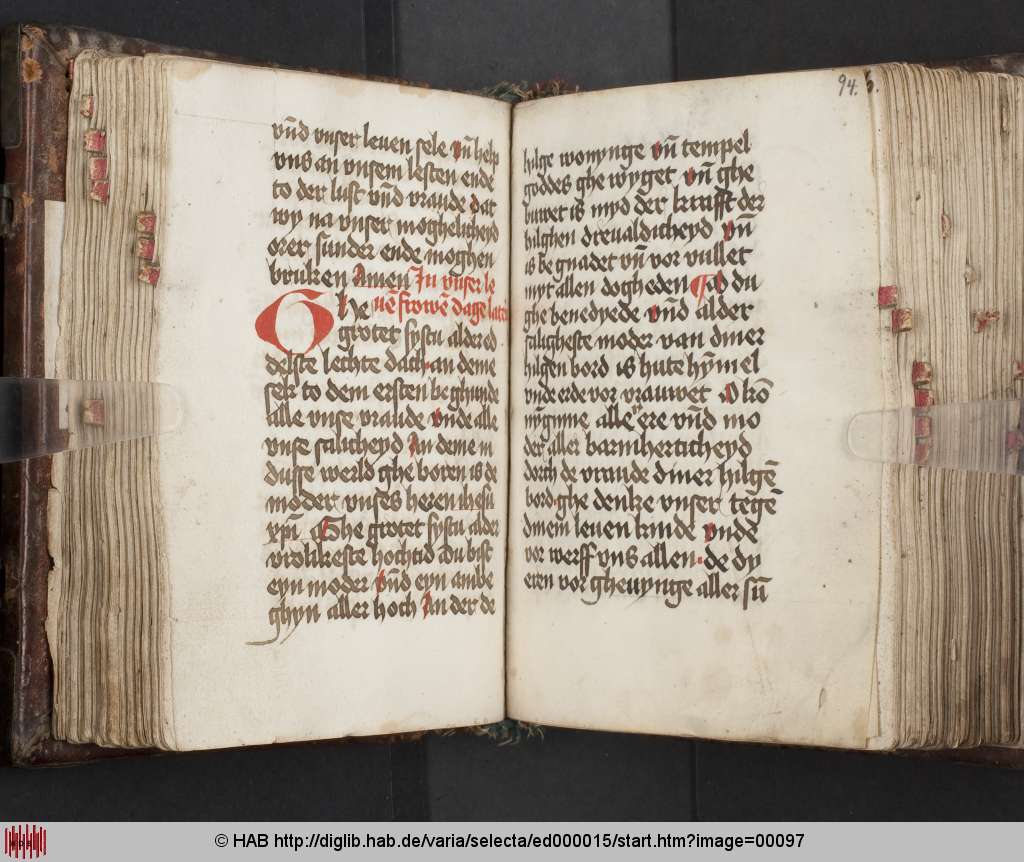 vn̄d vnser leuen sele vn̄ help
vns an vnsem lesten ende
to der lust vn̄d vraude dat
wy na vnser moghelicheyd
orer sunder ende moghen
bruken Amen In vnser le
Ghe uē frowē dage
grotet systu alder ed
delste lechte dach an deme
sek to dem ersten beghunde
alle vnse vraude vnde alle
vnse salicheyd An deme in
dusse werld ghe boren is de
moder vnses heren ihesu
xpū Ghe grotet systu alder
vrolikeste hochtid du bist
eyn moder vn̄d eyn anbe
ghyn aller hoch An der de
94.
hilge wonynge vn̄ tempel
goddes ghe wyget vn̄ ghe
buwet is myd der krafft der
hilghen dreualdicheyd vn̄
is be gnadet vn̄ vor vullet
myt allen dogheden O du
ghe benedyede vn̄d alder
saligheste moder van diner
hilgen bord is hute hȳmel
vnde erde vor vrauwet O kō
nȳginne alle ere vn̄d mo
der aller barmherticheyd
dorch de vraude diner hilgē
bord ghe denke vnser tegē
dinem leuen kinde vnde
vor werff vns allen de dy
eren vor gheuynge aller sū
© HAB http://diglib.hab.de/varia/selecta/ed000015/start.htm?image=00097